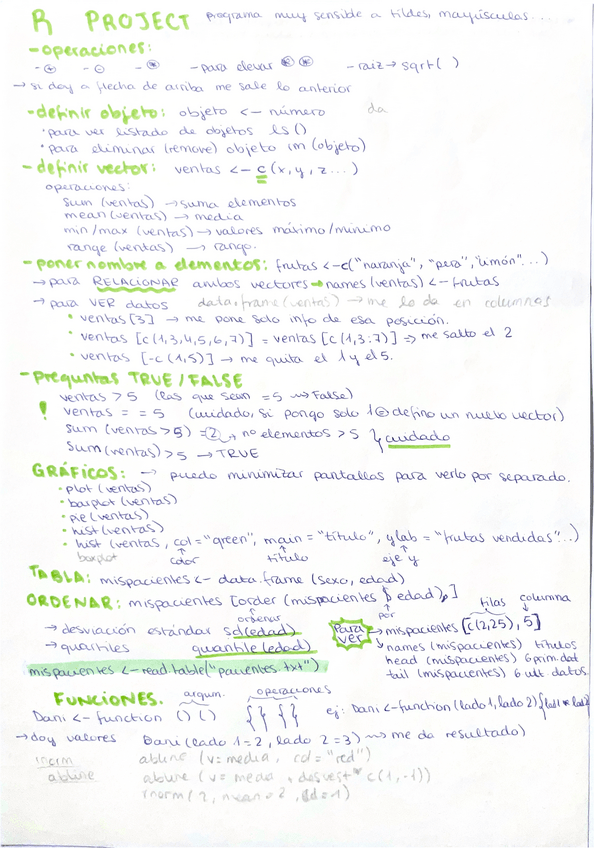 R PROJECT programa muy sensible a tildes, mayúsculas...
- operaciones:
- + - - - * - para elevar ** - raiz → sqrt( )
→ si doy a flecha de arriba me sale lo anterior
- definir objeto: objeto <- número da
· para ver listado de objetos ls()
· para eliminar (remove) objeto rm (objeto)
- definir vector: ventas <- c(x, y, z...)
operaciones:
sum (ventas) → suma elementos
mean (ventas) → media
min/max (ventas) → valores máximo/mínimo
range (ventas) → rango.
- poner nombre a elementos: frutas <- c("naranja", "pera", "limón"...)
→ para RELACIONAR ambos vectores → names (ventas) <- frutas
→ para VER datos data.frame (ventas) → me lo da en columnas
· ventas [3] → me pone solo info de esa posición.
· ventas [c(1,3,4,5,6,7)] = ventas [c(1,3:7)] => me salto el 2
· ventas [-c(1,5)] → me quita el 1 y el 5.
- Preguntas TRUE/FALSE
ventas > 5 (las que sean =5 → False)
! ventas = = 5 (cuidado, si pongo solo 1 = defino un nuevo vector)
sum (ventas > 5) = 2 → no elementos > 5 } cuidado
sum (ventas) > 5 → TRUE
GRÁFICOS: → puedo minimizar pantallas para verlo por separado.
· plot (ventas)
· barplot (ventas)
· pie (ventas)
· hist (ventas)
· hist (ventas, col = "green", main = "título", ylab = "frutas vendidas"..)
boxplot color título eje y
TABLA: mispacientes <- data.frame (sexo, edad)
ORDENAR: mispacientes [order (mispacientes $ edad),]
ordenar por
filas columna
→ desviación estándar sd(edad)
→ quartiles quantile (edad)
Para ver → mispacientes [c(2,25), 5]
→ names (mispacientes) títulos
head (mispacientes) 6 prim. dat
tail (mispacientes) 6 ult datos
mispacientes <- read.table("pacientes.txt")
FUNCIONES. argum. operaciones
Dani <- function () () {} {} ej: Dani <- function (lado 1, lado 2) {lad1 * lad2
→ doy valores Dani (lado 1 = 2, lado 2 = 3) → me da resultado)
abline (v = media, col = "red")
abline abline (v = media , desvest * c(1,-1))
rnorm (2, mean = 2, sd = 1)